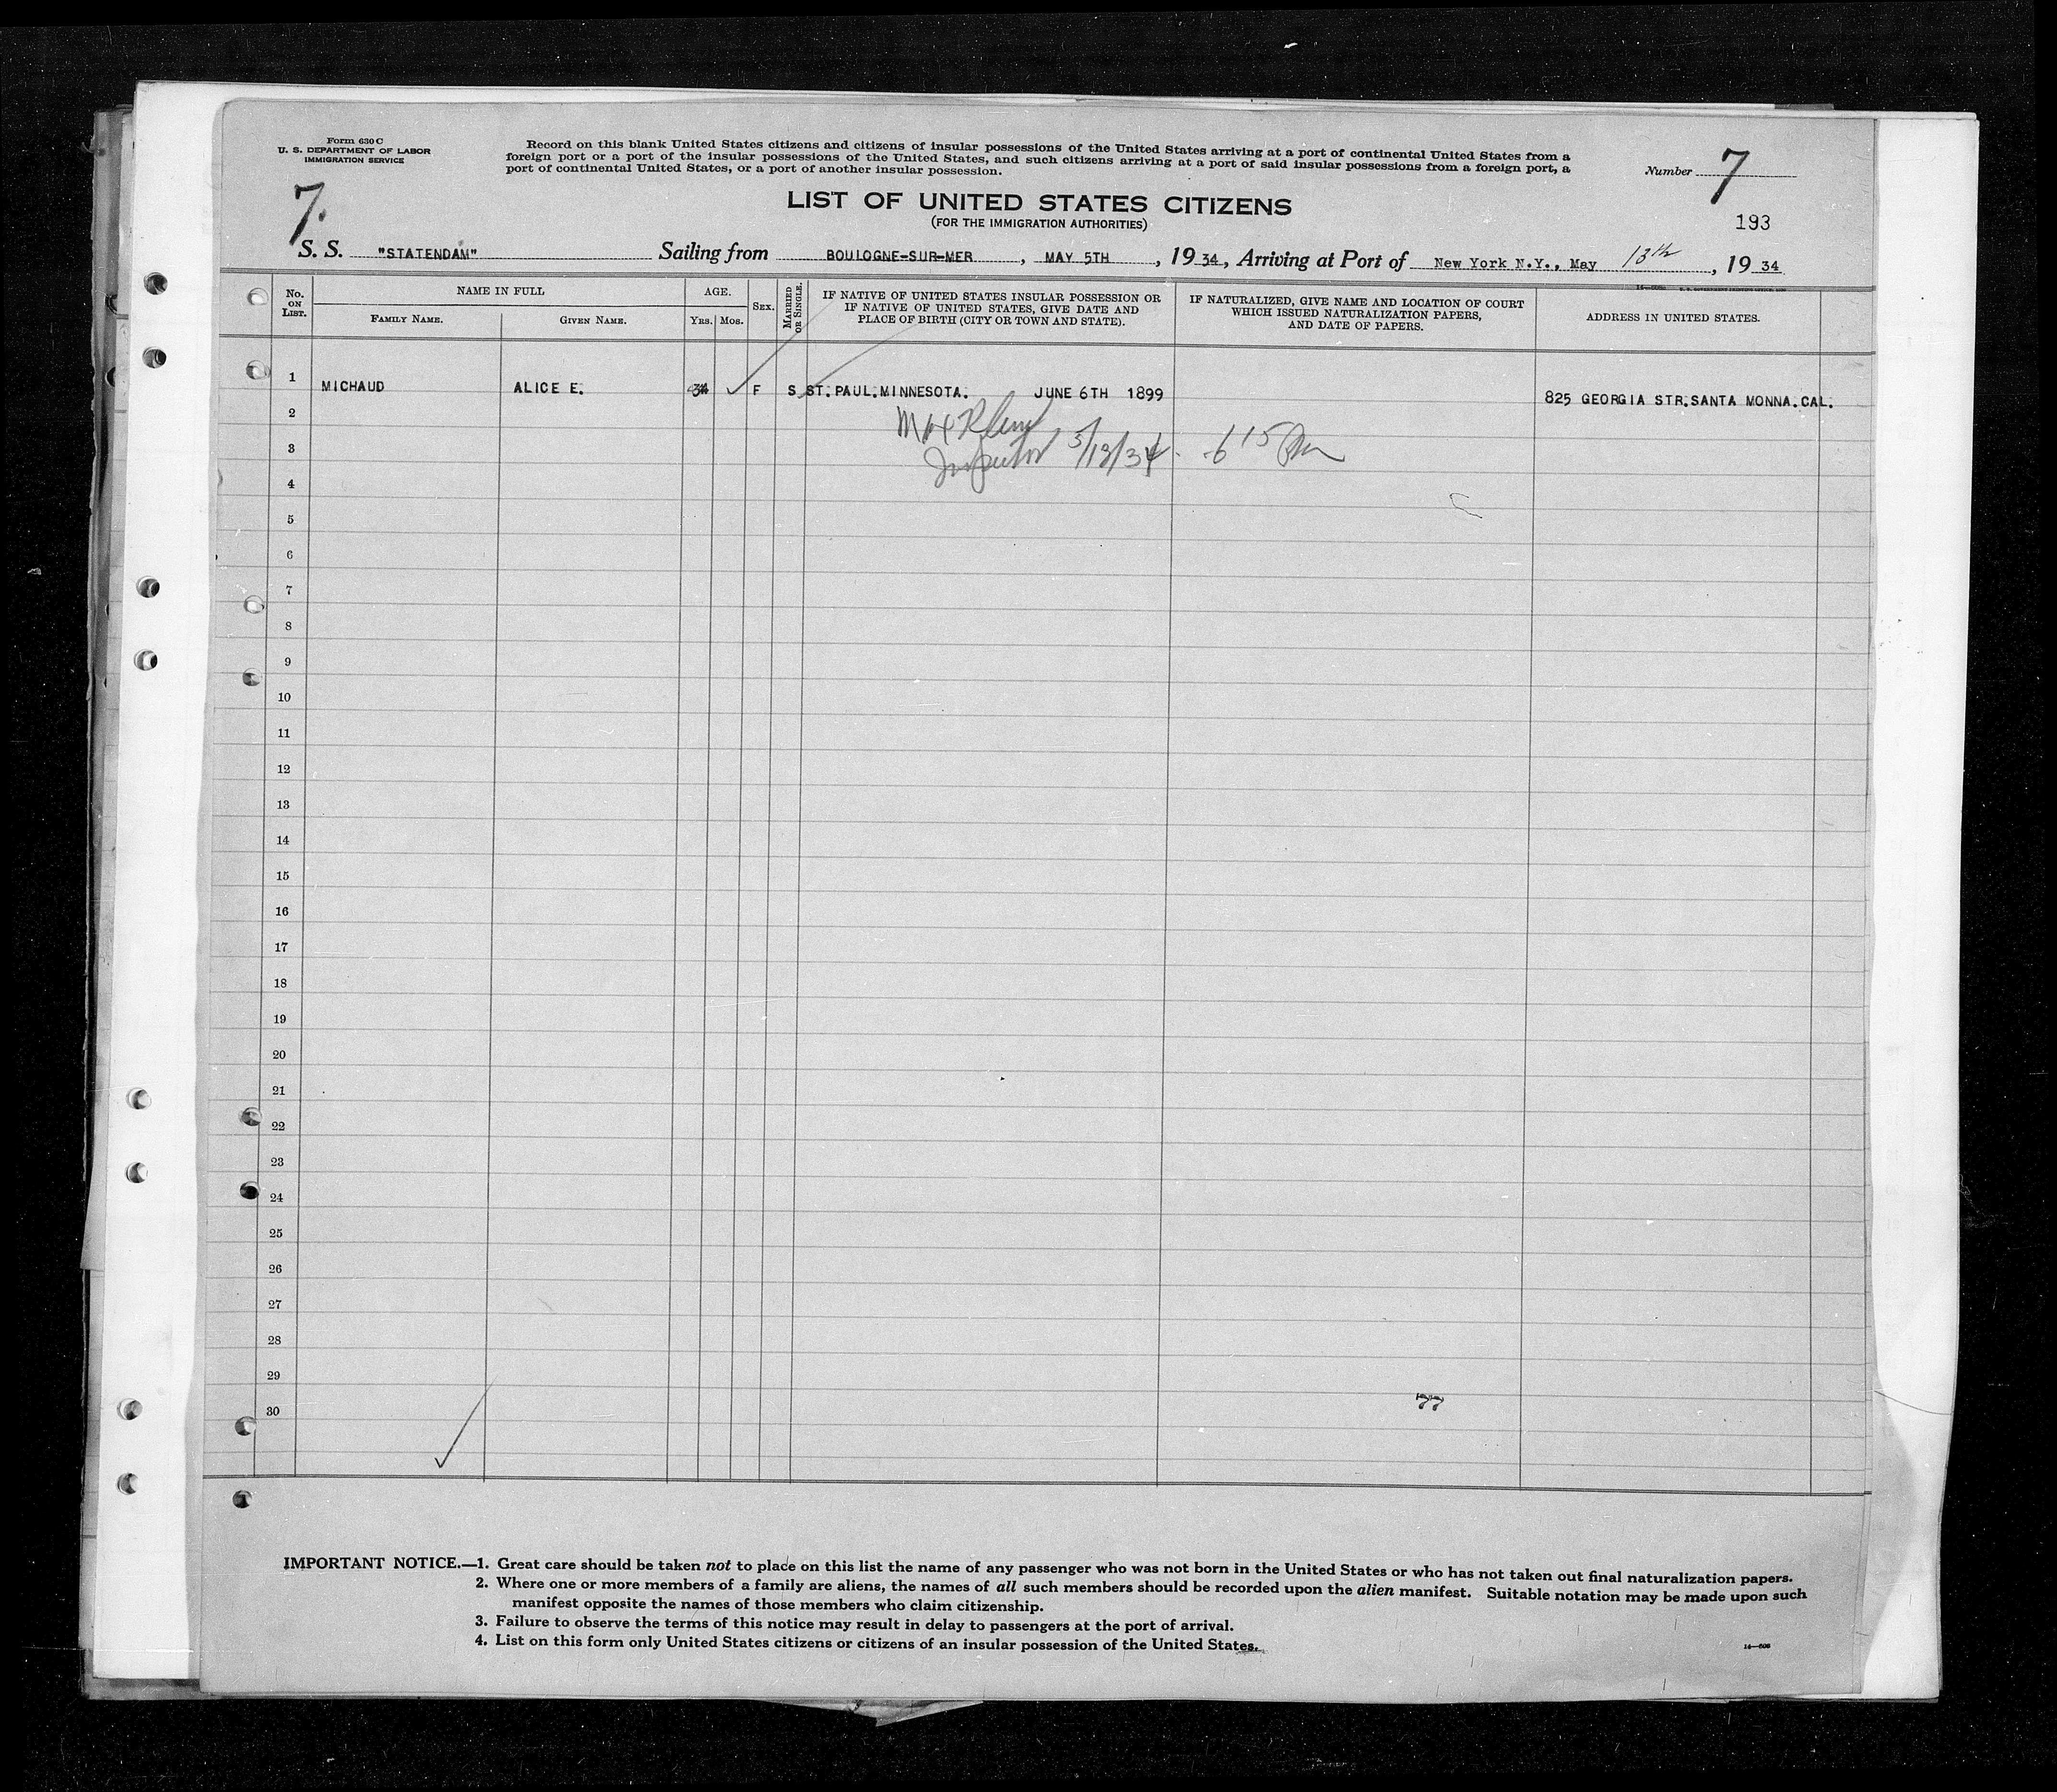 Form 630 C
U. S. DEPARTMENT OF LABOR
IMMIGRATION SERVICE
Record on this blank United States citizens and citizens of insular possessions of the United States arriving at a port of continental United States from a
foreign port or a port of the insular possessions of the United States, and such citizens arriving at a port of said insular possessions from a foreign port, a
port of continental United States, or a port of another insular possession.
Number 7
7.
LIST OF UNITED STATES CITIZENS
(FOR THE IMMIGRATION AUTHORITIES)
193
S. S. "STATENDAM" Sailing from BOULOGNE-SUR-MER, MAY 5TH, 19 34, Arriving at Port of New York N.Y., May 13th, 19 34
No. ON LIST.
NAME IN FULL
FAMILY NAME.
GIVEN NAME.
AGE.
YRS.
MOS.
SEX.
MARRIED OR SINGLE.
IF NATIVE OF UNITED STATES INSULAR POSSESSION OR
IF NATIVE OF UNITED STATES, GIVE DATE AND
PLACE OF BIRTH (CITY OR TOWN AND STATE).
IF NATURALIZED, GIVE NAME AND LOCATION OF COURT
WHICH ISSUED NATURALIZATION PAPERS,
AND DATE OF PAPERS.
ADDRESS IN UNITED STATES.
1 MICHAUD ALICE E. 34 F S ST.PAUL.MINNESOTA. JUNE 6TH 1899 825 GEORGIA STR.SANTA MONNA.CAL.
2
Inspector 5/13/34. 6 15 Pm
3
4
5
6
7
8
9
10
11
12
13
14
15
16
17
18
19
20
21
22
23
24
25
26
27
28
29
77
30
IMPORTANT NOTICE.—1. Great care should be taken not to place on this list the name of any passenger who was not born in the United States or who has not taken out final naturalization papers.
2. Where one or more members of a family are aliens, the names of all such members should be recorded upon the alien manifest. Suitable notation may be made upon such
manifest opposite the names of those members who claim citizenship.
3. Failure to observe the terms of this notice may result in delay to passengers at the port of arrival.
4. List on this form only United States citizens or citizens of an insular possession of the United States.